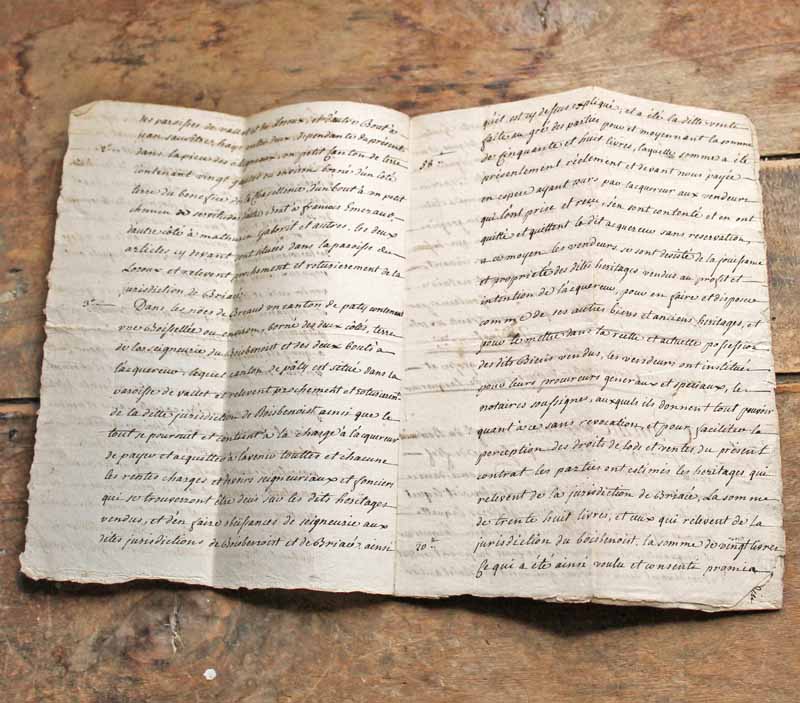 les paroisses de vallet et le Loroux, et d'autre Bout à
dans la piece des un petit canton de terre
contenant vingt ou environ borné d'un coté
terre du benefice de la d'un bout à un petit
chemin de d'autre bout à francois Emeraud
d'autre côté à mathurin Gaboril et autres, les deux
articles cy devant situés dans la paroisse du
Loroux et relivent prochement et roturierement de la
jurisdiction de Briacé
3o Dans les noës de Breaud un canton de paty contenant
une Boissellée ou environ, borné des deux côtés, terre
de la seigneurie du Boisbenoist et des deux bouts à
lacquereur, lequel canton de paty est situé dans la
paroisse de vallet et relivent prochement et roturierement
de la ditte jurisdiction de Boisbenoist ainsi que le
tout se poursuit et contient à la charge à l'acquereur
de payer et acquitter à lavenir touttes et chacune
les rentes charges et devoirs seigneuriaux et fonciers
qui se trouveront être deus sur les dits heritages
vendus, et d'en faire obeissances de seigneurie aux
dites jurisdictions de Boisbenoist et de Briacé, ainsi
quil est cy dessus expliqué, et a été la ditte vente
faitte au gré des parties pour et moyennant la somme
58.tt de cinquante et huit livres, laquelle somme a été
presentement réelement et devant nous payée
en espece ayant cours par lacquereur aux vendeurs
qui l'ont prise et reçu s'en sont contenté et en ont
quitté et quittent le dit acquereur sans reservation,
a ce moyen les vendeurs se sont desisté de la jouissance
et proprieté des dits heritages vendus au profit et
intention de l'acquereur, pour en faire et disposer
comme de ses autres biens et anciens heritages, et
pour le mettre dans la reelle et actuelle possession
des dits Biens vendus, les vendeurs ont institué
pour leurs procureurs generaux et speciaux, les
notaires soussignes, auxquels ils donnent tout pouvoir
quant a ce sans revocation, et pour faciliter la
perception des droits de lods et ventes du présent
contrat les parties ont estimés les heritages qui
relivent de la jurisdiction de Briacée, La somme
de trente huit livres, et ceux qui relivent de la
20.tt jurisdiction du boisbenoist, la somme de vingt livres
Ce qui a été ainsi voulu et consenty promis